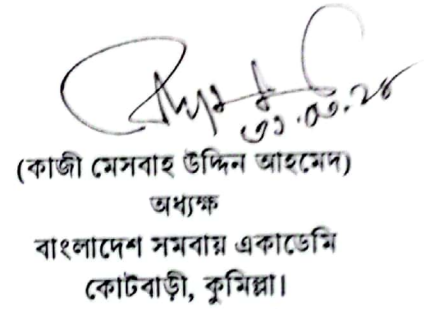 (কাজী মেসবাহ উদ্দিন আহমেদ)
অধ্যক্ষ
বাংলাদেশ সমবায় একাডেমি
কোটবাড়ী, কুমিল্লা।